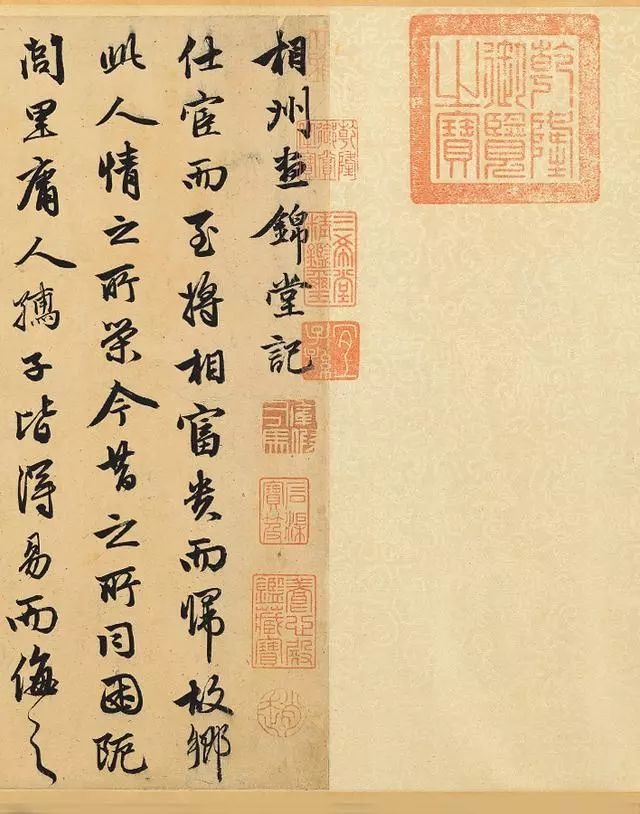 乾隆御覽之寶
相州晝錦堂記
仕宦而至將相富貴而歸故鄉
此人情之所榮今昔之所同困阨
閭里庸人孺子皆得易而侮之
三希堂精鑑璽
宜子孫
石渠寶笈
養心殿鑑藏寶